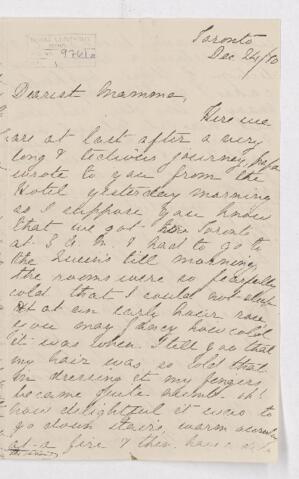 Toronto
Dec 24/70
Dearest Mamma,
Here we
are at last after a very
long & tedious journey, papa
wrote to you from the
Hotel yesterday morning
so I suppose you know
that we got here Toronto
at 3 A. M. I had to go to
the Queen's till morning,
the rooms were so fearfully
cold that I could not sleep
at an early hour
you may fancy how cold
it was when I tell you that
my hair was so cold that
in dressing it my fingers
became quite numb oh!
how delightful it was to
go down stairs, warm ourselves
at a fire & then have